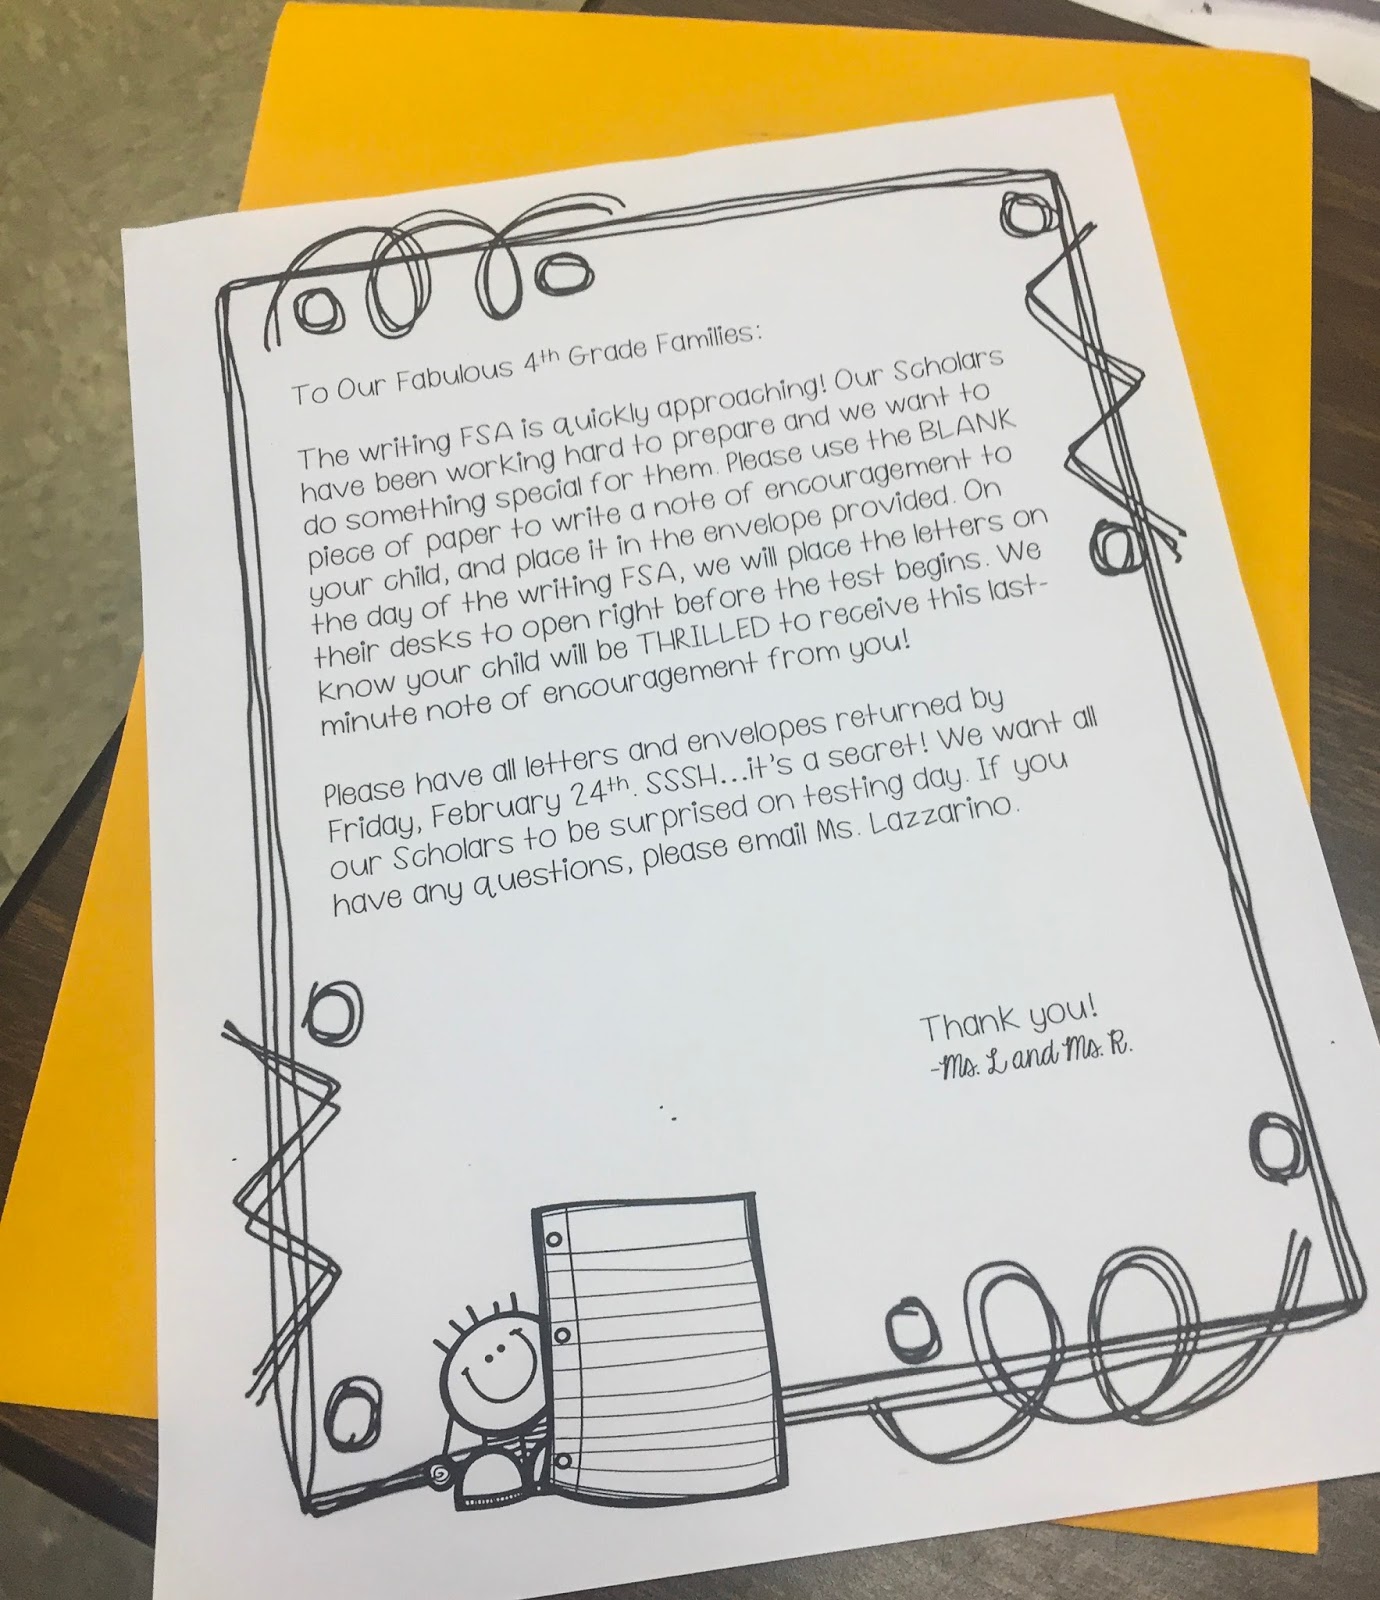 To Our Fabulous 4th Grade Families:
The writing FSA is quickly approaching! Our Scholars
have been working hard to prepare and we want to
do something special for them. Please use the BLANK
piece of paper to write a note of encouragement to
your child, and place it in the envelope provided. On
the day of the writing FSA, we will place the letters on
their desks to open right before the test begins. We
know your child will be THRILLED to receive this last-
minute note of encouragement from you!
Please have all letters and envelopes returned by
Friday, February 24th. SSSH...it's a secret! We want all
our Scholars to be surprised on testing day. If you
have any questions, please email Ms. Lazzarino.
Thank you!
-Ms. L and Ms. R.